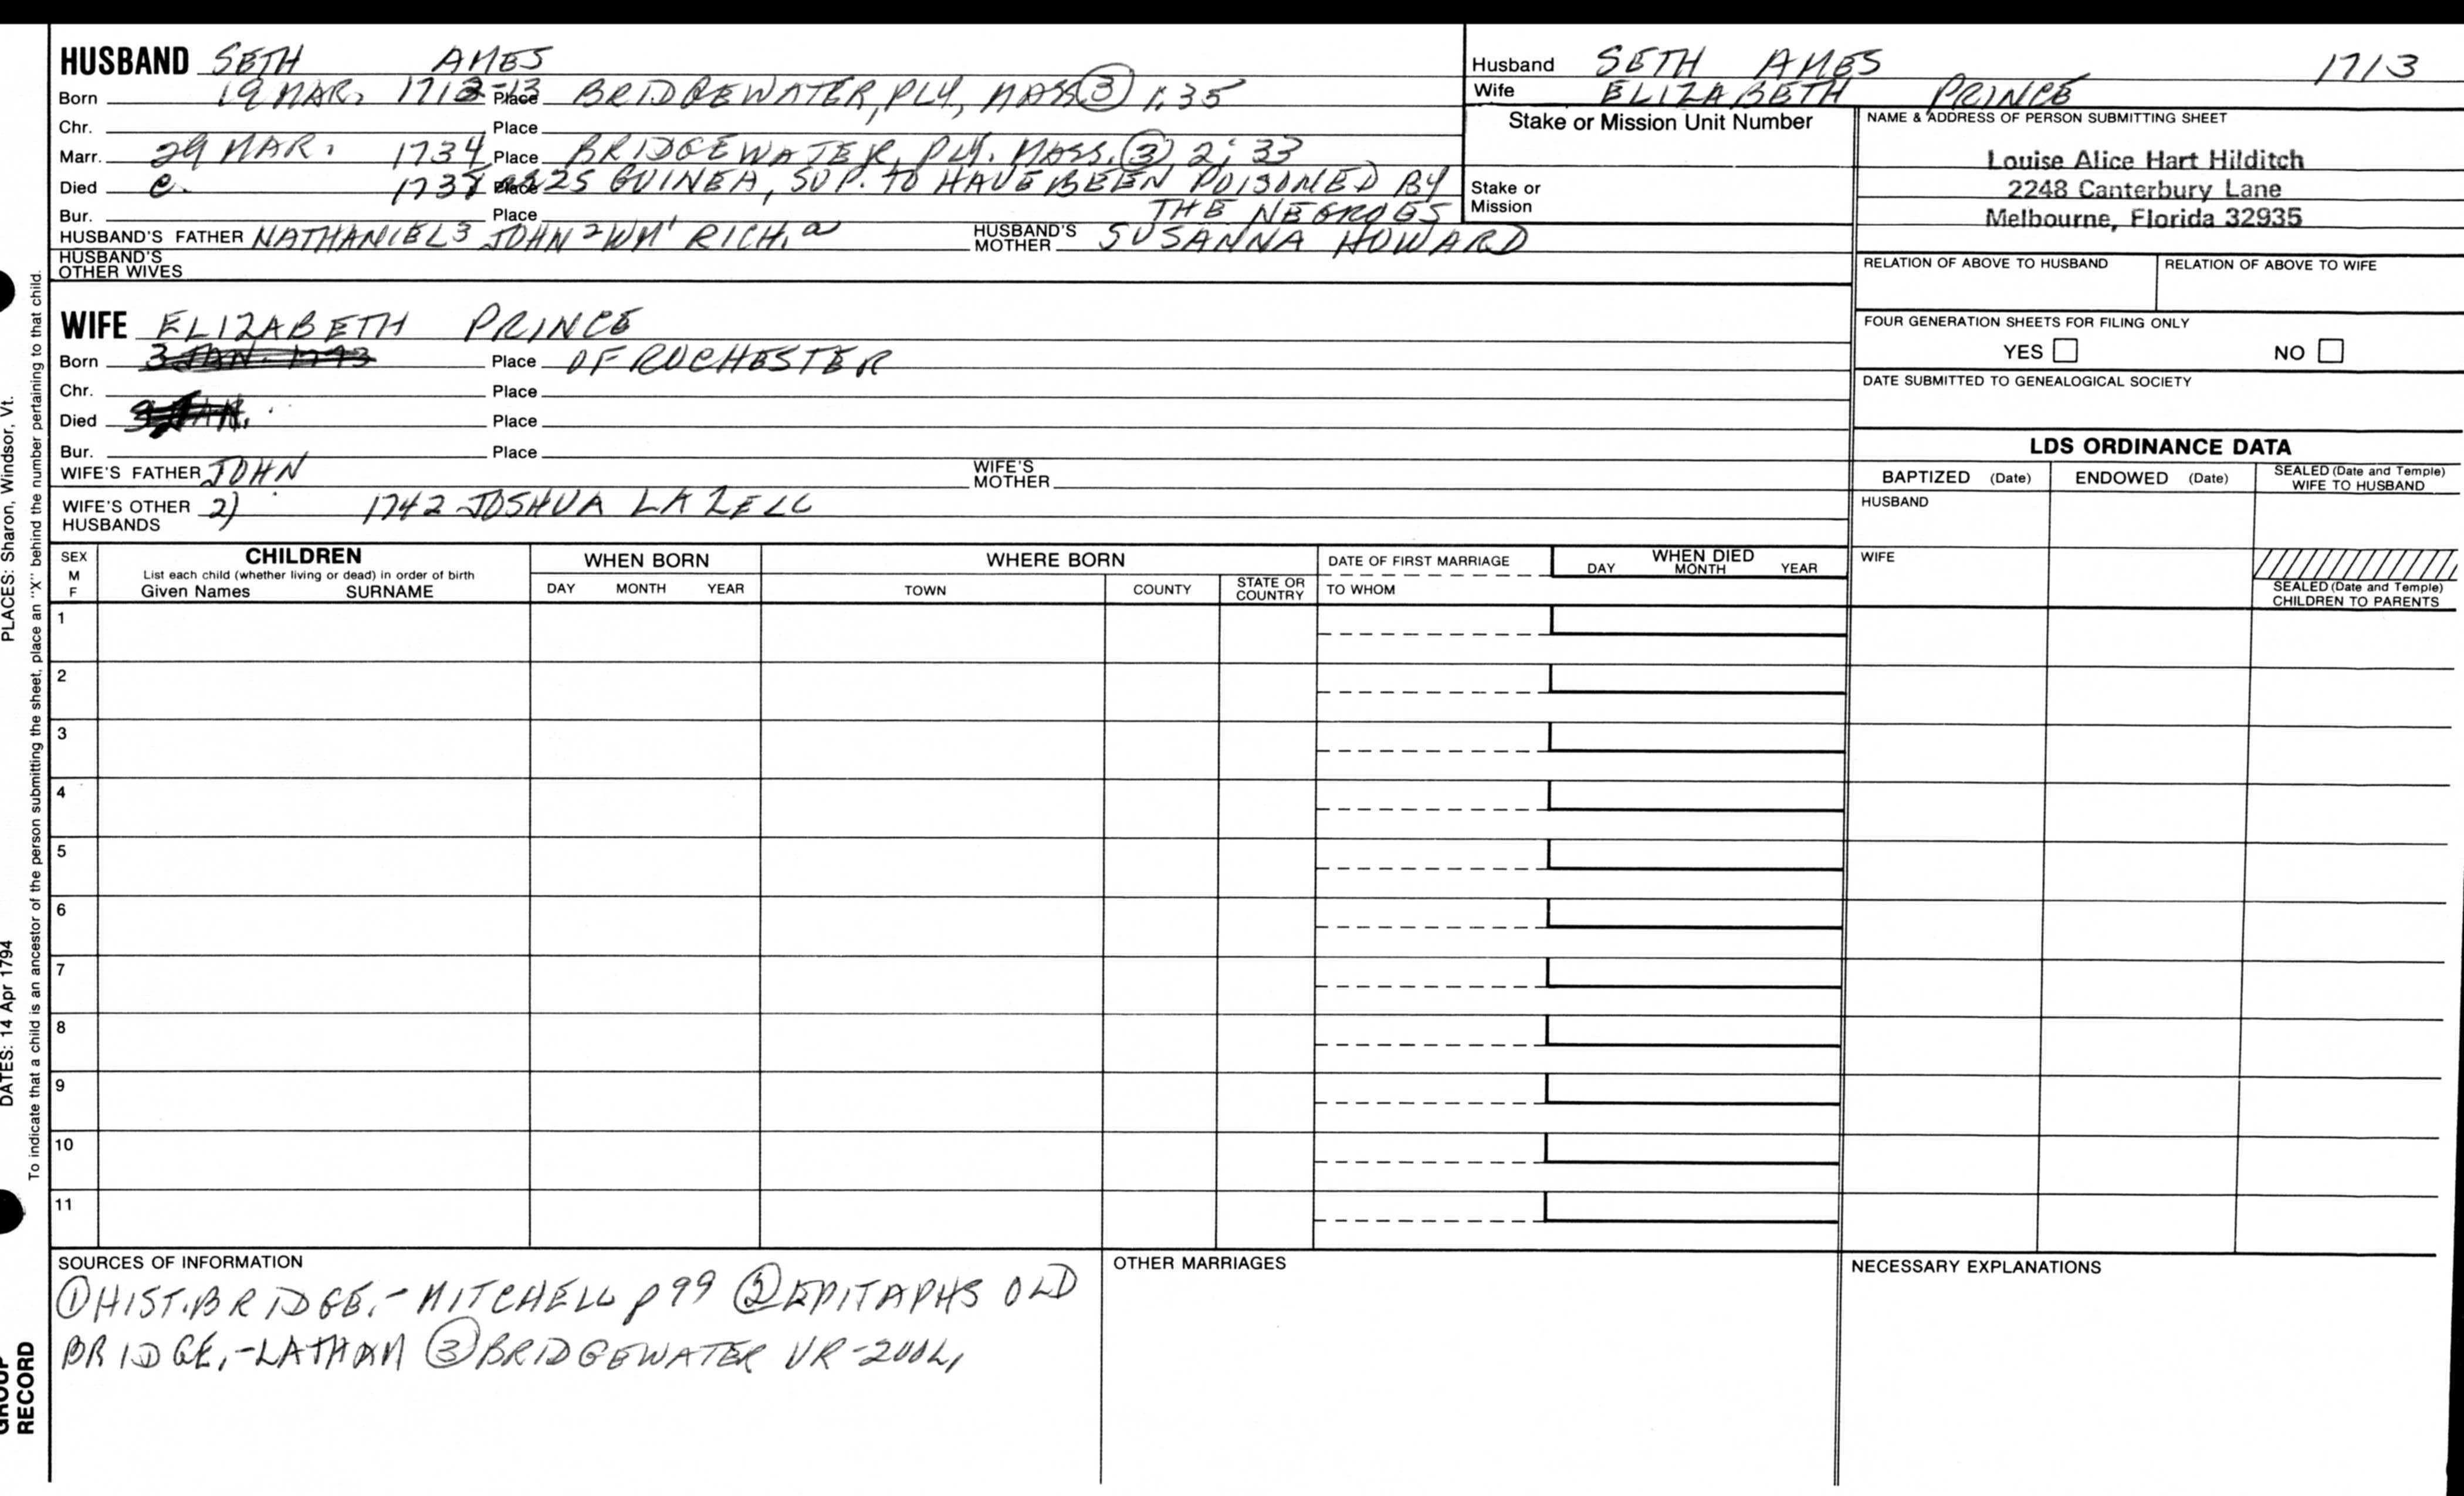 HUSBAND SETH AMES
Born 19 MAR. 1712-13 Place BRIDGEWATER, PLY, MASS ③ 1:35
Chr. Place
Marr. 29 MAR. 1734 Place BRIDGEWATER, PLY. MASS. ③ 2:33
Died C. Place GUINEA, SUP. TO HAVE BEEN POISONED BY
THE NEGROES
Bur. Place
HUSBAND'S FATHER NATHANIEL3 JOHN2 WM1 RICH.a HUSBAND'S MOTHER SUSANNA HOWARD
HUSBAND'S OTHER WIVES
WIFE ELIZABETH PRINCE
Born 3 JAN. 1743 Place OF ROCHESTER
Chr. Place
Died JAN. Place
Bur. Place
WIFE'S FATHER JOHN WIFE'S MOTHER
WIFE'S OTHER HUSBANDS 2) 1742 JOSHUA LAZELL
Husband SETH AMES 1713
Wife ELIZABETH PRINCE
Stake or Mission Unit Number
Stake or Mission
NAME & ADDRESS OF PERSON SUBMITTING SHEET
Louise Alice Hart Hilditch
2248 Canterbury Lane
Melbourne, Florida 32935
RELATION OF ABOVE TO HUSBAND RELATION OF ABOVE TO WIFE
FOUR GENERATION SHEETS FOR FILING ONLY
YES NO
DATE SUBMITTED TO GENEALOGICAL SOCIETY
LDS ORDINANCE DATA
BAPTIZED (Date) ENDOWED (Date) SEALED (Date and Temple) WIFE TO HUSBAND
HUSBAND
WIFE
SEALED (Date and Temple) CHILDREN TO PARENTS
SEX M F
CHILDREN
List each child (whether living or dead) in order of birth
Given Names SURNAME
WHEN BORN
DAY MONTH YEAR
WHERE BORN
TOWN COUNTY STATE OR COUNTRY
DATE OF FIRST MARRIAGE
TO WHOM
WHEN DIED
DAY MONTH YEAR
1
2
3
4
5
6
7
8
9
10
11
SOURCES OF INFORMATION
①HIST. BRIDGE.-MITCHELL p 99 ②EPITAPHS OLD
BRIDGE.-LATHAM ③BRIDGEWATER VR-2VOL,
OTHER MARRIAGES
NECESSARY EXPLANATIONS
PLACES: Sharon, Windsor, Vt.
DATES: 14 Apr 1794
To indicate that a child is an ancestor of the person submitting the sheet, place an "X" behind the number pertaining to that child.
GROUP
RECORD